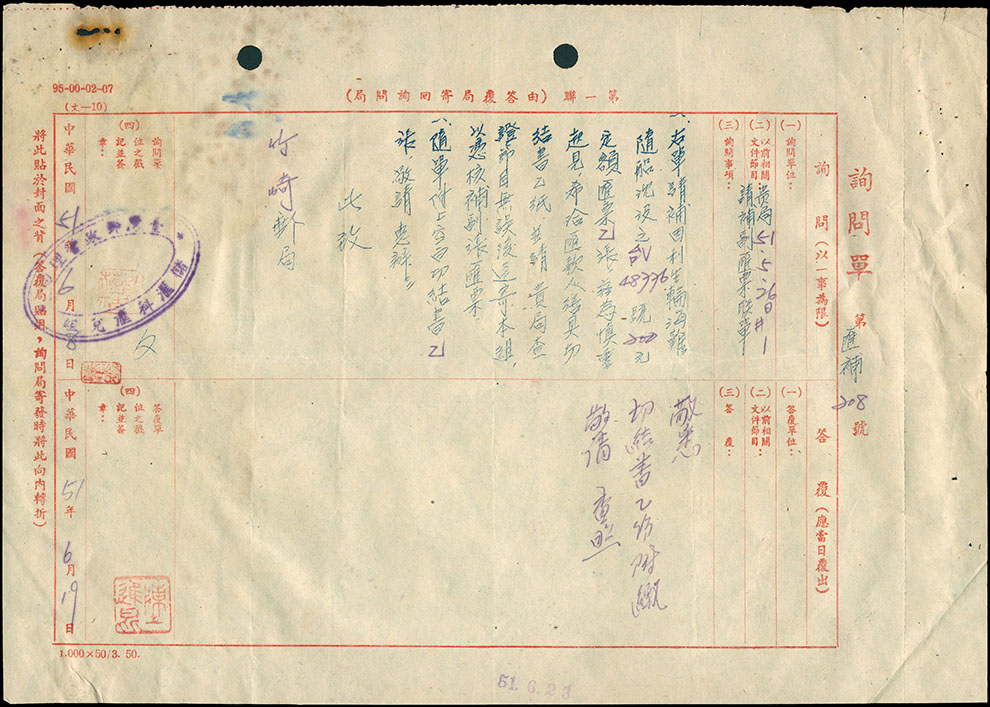 95-00-02-07
(文—10)
第一聯(由答覆局寄回詢問局)
詢問單 第匯補208號
詢問(以一事為限)
(一)詢問單位：
(二)以前相關文件節目：貴局51.5.26日#1請補副匯票
(三)詢問事項：
一、右單請補因利生輪海難
隨船沈没之 48776號200元
定額匯票乙張，茲為慎重
起見，希洽匯款人繕具切
結書乙紙，並請貴局查
證節目無誤後逕寄本組，
以憑核補副張匯票。
一、隨單付上空白切結書乙
張，敬請惠辦。
此致
竹崎郵局
(四)詢問單位之戳記並簽章：
儲匯科匯兌
中華民國51年6月8日
答覆(應當日覆出)
(一)答覆單位：
(二)以前相關文件節目：
(三)答覆：
敬悉
切結書乙份附繳
敬請 查照
(四)答覆單位之戳記並簽章：
中華民國51年6月19日
將此貼於封面之背(答覆局貼用，詢問局寄發時將此向內轉折)
1.000×50/3. 50.
51.6.23